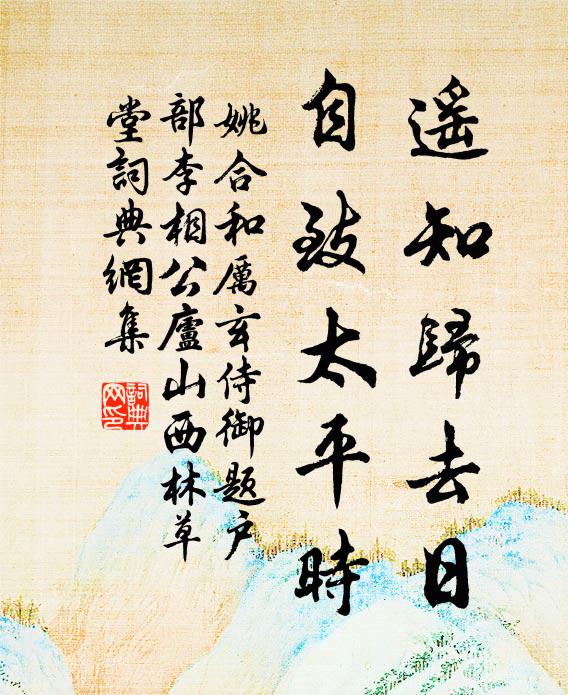 遥知歸去日
自致太平時
姚合和厲玄侍御题户
部李相公廬山西林草
堂詞典網集
詞典
网印